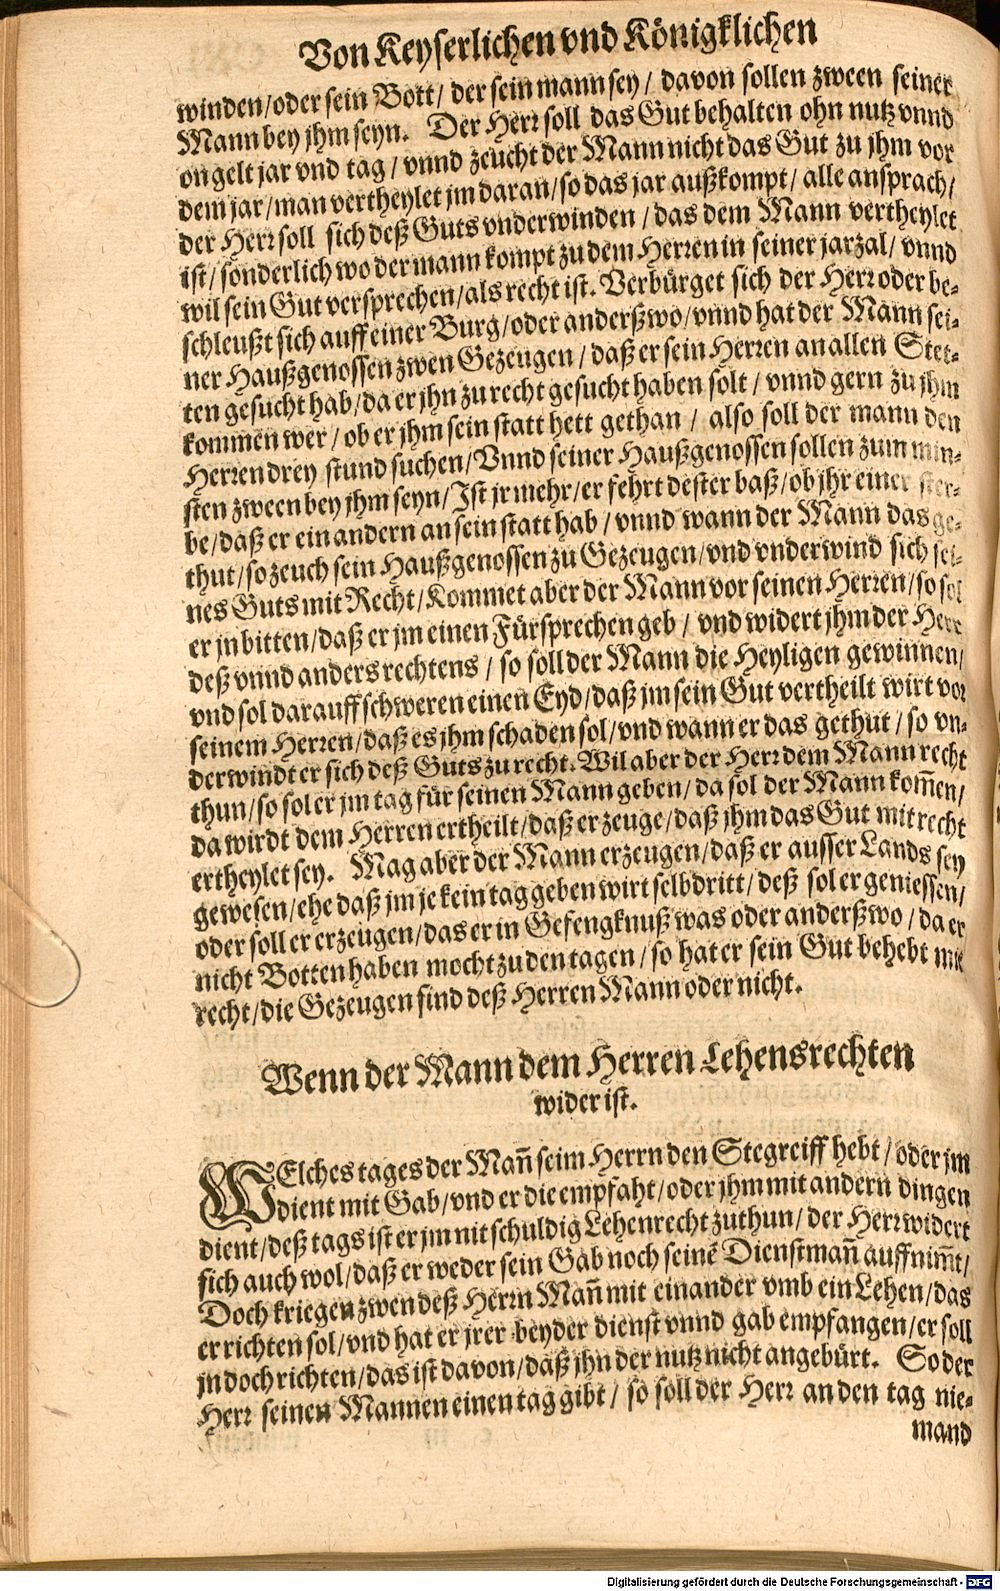 Von Keyserlichen vnd Königklichen
winden/oder sein Bott/ der sein mann sey/ davon sollen zween seiner
Mann bey jhm seyn. Der Herr soll das Gut behalten ohn nutz vnnd
on gelt jar vnd tag/ vnnd zeucht der Mann nicht das Gut zu jhm vor
dem jar/man vertheylet jm daran/so das jar außkompt/ alle ansprach/
der Herr soll sich deß Guts vnderwinden/das dem Mann vertheylet
ist/sonderlich wo der mann kompt zu dem Herren in seiner jarzal/ vnnd
wil sein Gut versprechen/als recht ist. Verbürget sich der Herr oder be-
schleußt sich auff einer Burg/oder anderßwo/vnnd hat der Mann sei-
ner Haußgenossen zwen Gezeugen/ daß er sein Herren an allen Stet-
ten gesucht hab/da er jhn zu recht gesucht haben solt/ vnnd gern zu jhm
kommen wer/ ob er jhm sein statt hett gethan/ also soll der mann den
Herren drey stund suchen/Vnnd seiner Haußgenossen sollen zum min-
sten zween bey jhm seyn/Ist jr mehr/er fehrt dester baß/ob jhr einer ster-
be/daß er ein andern an sein statt hab/ vnnd wann der Mann das ge-
thut/so zeuch sein Haußgenossen zu Gezeugen/vnd vnderwind sich sei-
nes Guts mit Recht/Kommet aber der Mann vor seinen Herren/so sol
er jn bitten/daß er jm einen Fürsprechen geb/ vnd widert jhm der Herr
deß vnnd anders rechtens/ so soll der Mann die Heyligen gewinnen/
vnd sol darauff schweren einen Eyd/daß jm sein Gut vertheilt wirt vor
seinem Herren/daß es jhm schaden sol/vnd wann er das gethut/ so vn-
derwindt er sich deß Guts zu recht. Wil aber der Herr dem Mann recht
thun/so sol er jm tag für seinen Mann geben/ da sol der Mann kom̃en/
da wirdt dem Herren ertheilt/daß er zeuge/daß jhm das Gut mit recht
ertheylet sey. Mag aber der Mann erzeugen/daß er ausser Lands sey
gewesen/ehe daß jm je kein tag geben wirt selbdritt/ deß sol er geniessen/
oder soll er erzeugen/das er in Gefengknuß was oder anderßwo/ da er
nicht Botten haben mocht zu den tagen/ so hat er sein Gut behebt mit
recht/die Gezeugen sind deß Herren Mann oder nicht.
Wenn der Mann dem Herren Lehensrechten
wider ist.
WElches tages der Mañ seim Herrn den Stegreiff hebt/ oder jm
dient mit Gab/vnd er die empfaht/oder jhm mit andern dingen
dient/deß tags ist er jm nit schuldig Lehenrecht zuthun/ der Herr widert
sich auch wol/daß er weder sein Gab noch seinẽ Dienstmañ auffnim̃t/
Doch kriegen zwen deß Herrn Mañ mit einander vmb ein Lehen/das
er richten sol/vnd hat er jrer beyder dienst vnnd gab empfangen/er soll
jn doch richten/das ist davon/daß jhn der nutz nicht angebürt. So der
Herr seinen Mannen einen tag gibt/ so soll der Herr an den tag nie-
mand
Digitalisierung gefördert durch die Deutsche Forschungsgemeinschaft - DFG